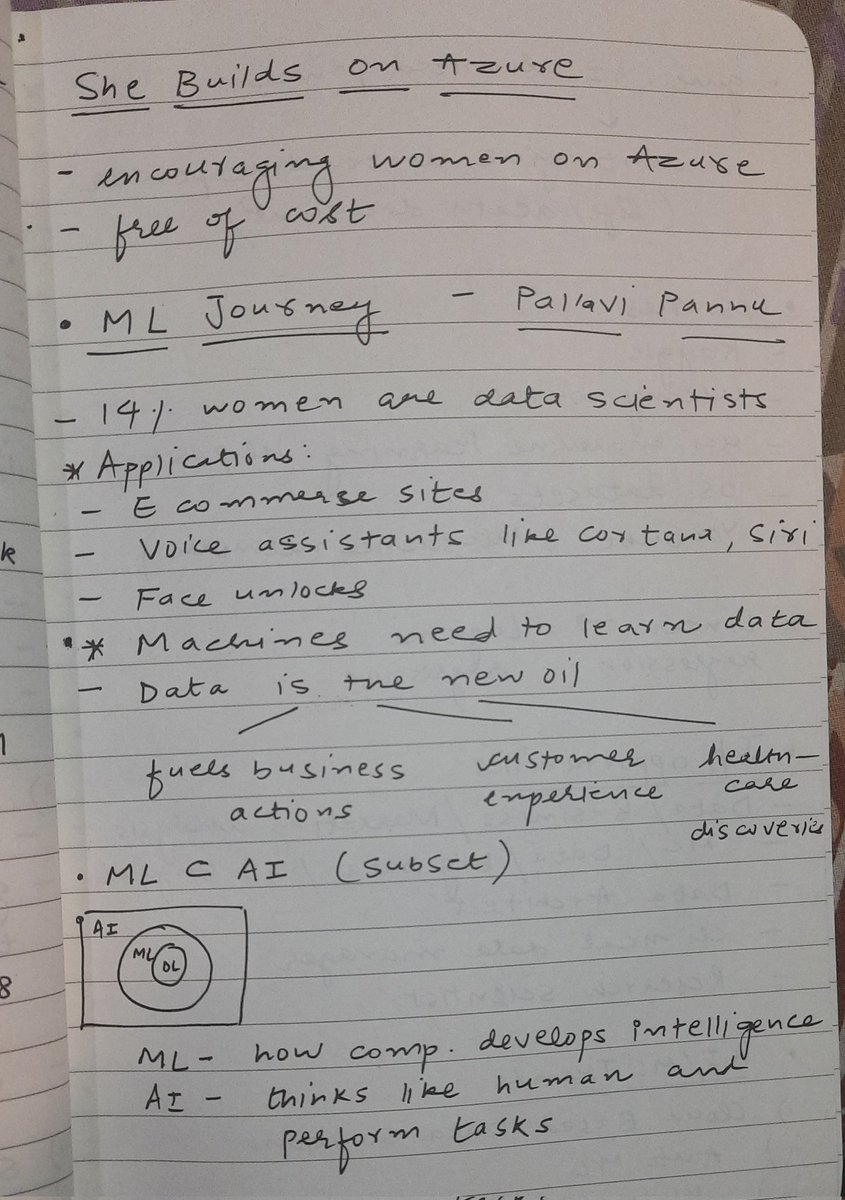 She Builds on Azure
- encouraging women on Azure
- free of cost
• ML Journey - Pallavi Pannu
- 14% women are data scientists
* Applications:
- E commerse sites
- Voice assistants like cortana, siri
- Face unlocks
* Machines need to learn data
- Data is the new oil
fuels business customer health-
actions experience care
discoveries
• ML ⊂ AI (subset)
AI
ML
DL
ML - how comp. develops intelligence
AI - thinks like human and
perform tasks